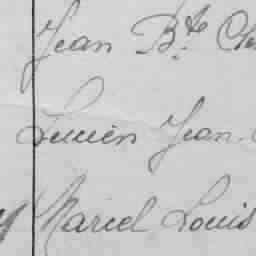 Jean Bte
Lucien Jean
Marcel Louis